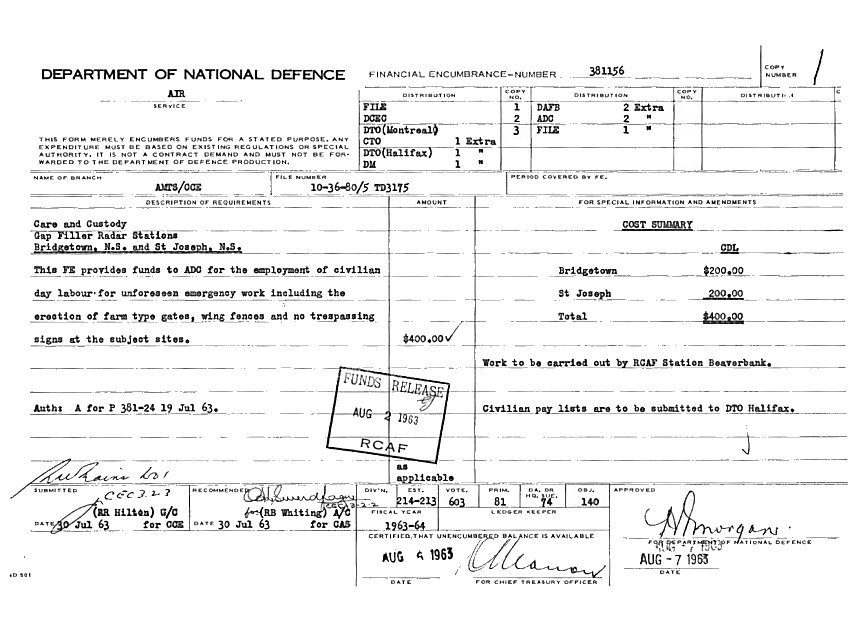 DEPARTMENT OF NATIONAL DEFENCE
AIR
SERVICE
FINANCIAL ENCUMBRANCE-NUMBER 381156
COPY NUMBER 1
THIS FORM MERELY ENCUMBERS FUNDS FOR A STATED PURPOSE. ANY
EXPENDITURE MUST BE BASED ON EXISTING REGULATIONS OR SPECIAL
AUTHORITY. IT IS NOT A CONTRACT DEMAND AND MUST NOT BE FOR-
WARDED TO THE DEPARTMENT OF DEFENCE PRODUCTION.
DISTRIBUTION COPY NO. DISTRIBUTION COPY NO.
FILE 1 DAFB 2 Extra
DCEC 2 ADC 2 "
DTO(Montreal) 3 FILE 1 "
CTO 1 Extra
DTO(Halifax) 1 "
DM 1 "
NAME OF BRANCH FILE NUMBER PERIOD COVERED BY FE.
AMTS/CCE 10-36-80/5 TD3175
DESCRIPTION OF REQUIREMENTS AMOUNT FOR SPECIAL INFORMATION AND AMENDMENTS
Care and Custody
Gap Filler Radar Stations
Bridgetown, N.S. and St Joseph, N.S.
This FE provides funds to ADC for the employment of civilian
day labour for unforeseen emergency work including the
erection of farm type gates, wing fences and no trespassing
signs at the subject sites. $400.00
Auth: A for P 381-24 19 Jul 63.
COST SUMMARY
CDL
Bridgetown $200.00
St Joseph 200.00
Total $400.00
Work to be carried out by RCAF Station Beaverbank.
Civilian pay lists are to be submitted to DTO Halifax.
FUNDS RELEASE
AUG 2 1963
RCAF
as
applicable
SUBMITTED
CEC 3.2.3
(RR Hilton) G/C
DATE 30 Jul 63 for CCE
RECOMMENDED
for (RB Whiting) A/C
DATE 30 Jul 63 for CAS
DIV'N. EST. VOTE. PRIM. DA. OR HQ. SUE. OBJ.
214-213 603 81 74 140
FISCAL YEAR LEDGER KEEPER
1963-64
CERTIFIED, THAT UNENCUMBERED BALANCE IS AVAILABLE
AUG 6 1963
DATE FOR CHIEF TREASURY OFFICER
APPROVED
Morgan
FOR DEPARTMENT OF NATIONAL DEFENCE
AUG - 7 1963
DATE